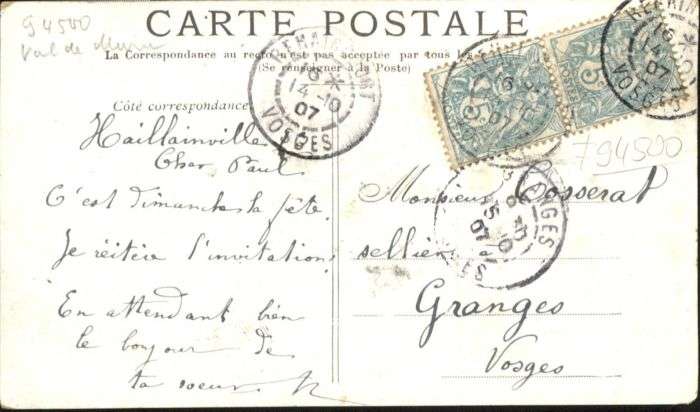 94500
Val de Marne
CARTE POSTALE
La Correspondance au recto n'est pas acceptée par tous les
(Se renseigner à la Poste)
Côté correspondance.
Haillainville
Cher Paul
C'est dimanche la fête.
Je réitère l'invitation
En attendant bien
le bonjour de
ta soeur
Monsieur Cosserat
sellier
Granges
Vosges
794500
14-10
07
VOSGES
VOSGES
07
GRANGES
15-10
07
5
5